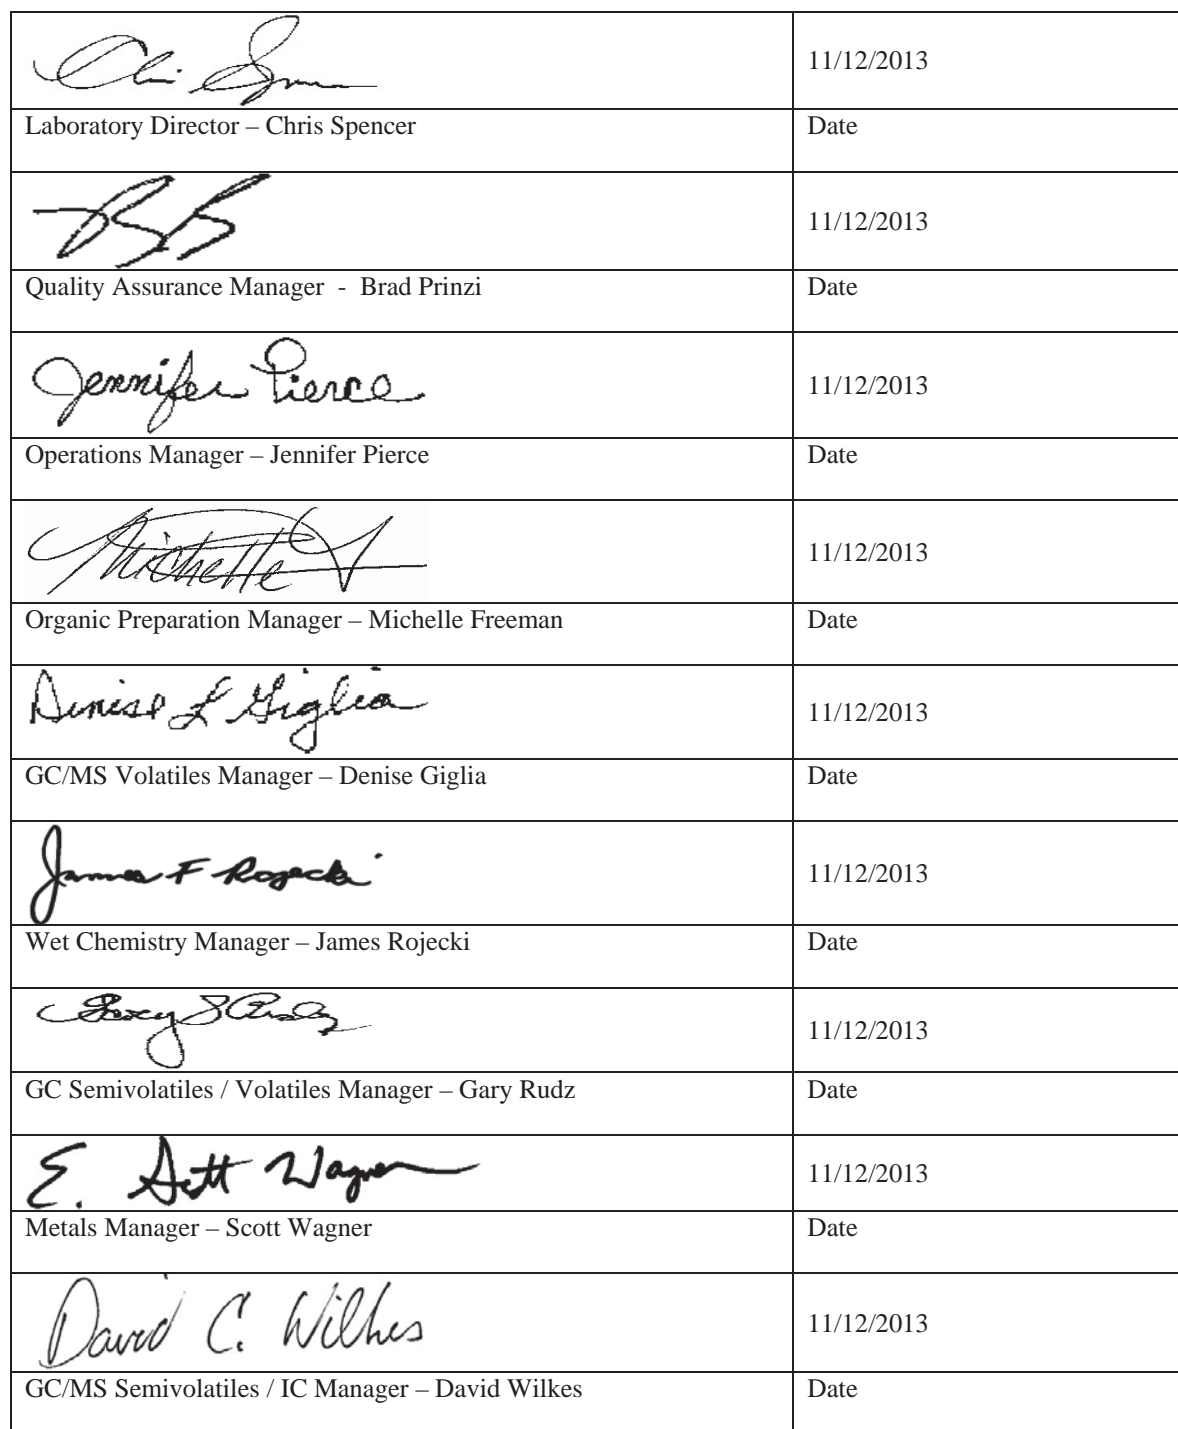 Chris Spencer 11/12/2013
Laboratory Director – Chris Spencer Date
11/12/2013
Quality Assurance Manager - Brad Prinzi Date
Jennifer Pierce 11/12/2013
Operations Manager – Jennifer Pierce Date
Michelle 11/12/2013
Organic Preparation Manager – Michelle Freeman Date
Denise L Giglia 11/12/2013
GC/MS Volatiles Manager – Denise Giglia Date
James F Rojecki 11/12/2013
Wet Chemistry Manager – James Rojecki Date
11/12/2013
GC Semivolatiles / Volatiles Manager – Gary Rudz Date
E. Scott Wagner 11/12/2013
Metals Manager – Scott Wagner Date
David C. Wilkes 11/12/2013
GC/MS Semivolatiles / IC Manager – David Wilkes Date